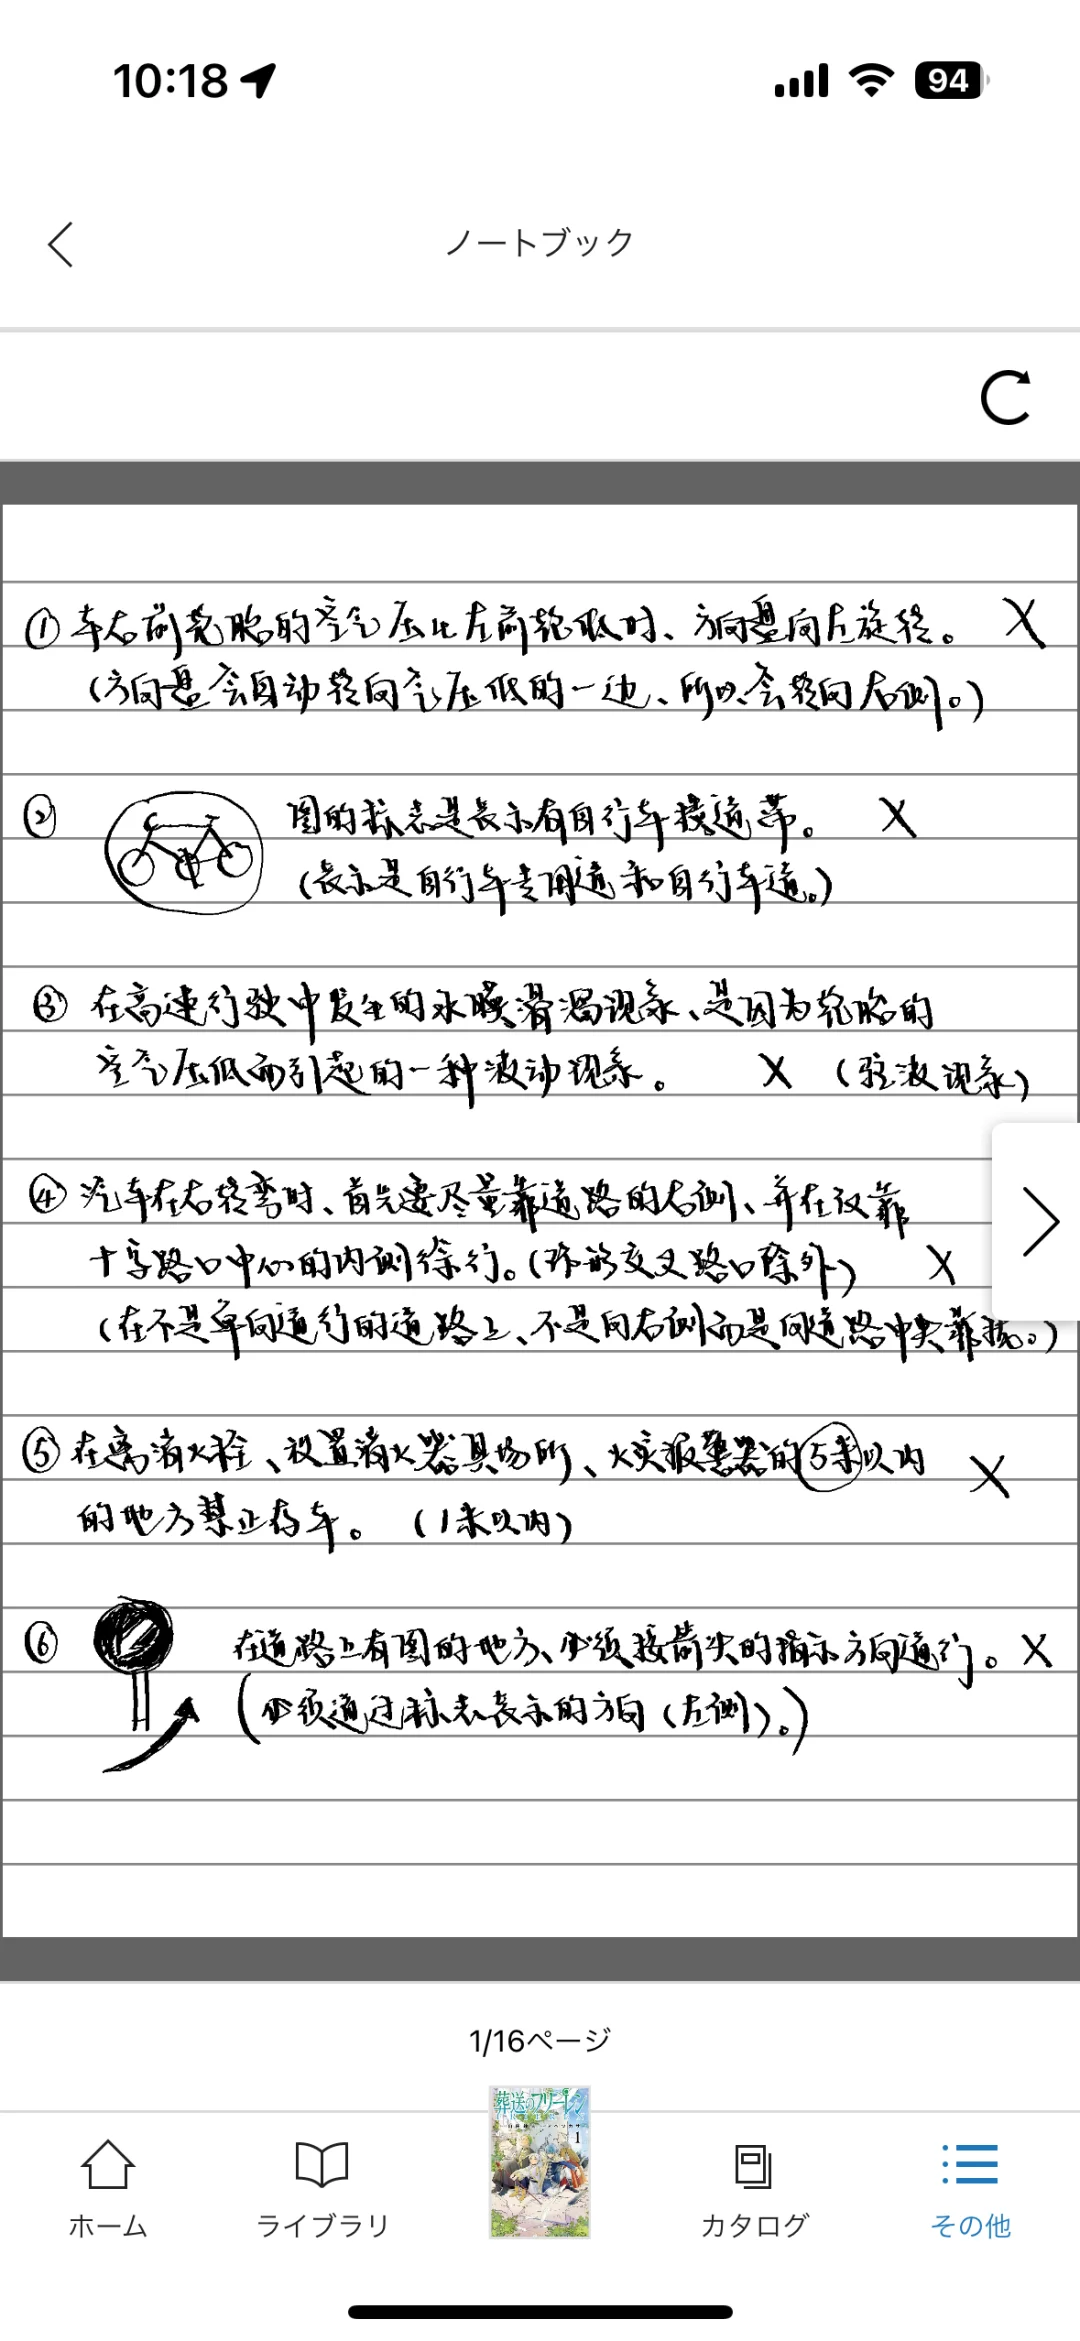 10:18
94
ノートブック
①车右前轮胎的空气压比左前轮低时、方向盘向左旋转。 X
(方向盘会自动转向气压低的一边、所以会转向右侧。)
② 图的标志是表示有自行车横道带。 X
(表示是自行车专用道和自行车道。)
③ 在高速行驶中发生的水膜滑溜现象、是因为轮胎的
空气压低而引起的一种波动现象。 X (驻波现象)
④ 汽车在右转弯时、首先要尽量靠道路的右侧、并在仅靠
十字路口中心的内侧徐行。(环形交叉路口除外) X
(在不是单向通行的道路上、不是向右侧而是向道路中央靠拢。)
⑤在离消火栓、设置消火器具场所、火灾报警器的5米以内 X
的地方禁止存车。 (1米以内)
⑥ 在道路上有图的地方、必须按箭头的指示方向通行。 X
(必须通过标志表示的方向(左侧)。)
1/16ページ
葬送のフリーレン
1
ホーム
ライブラリ
カタログ
その他